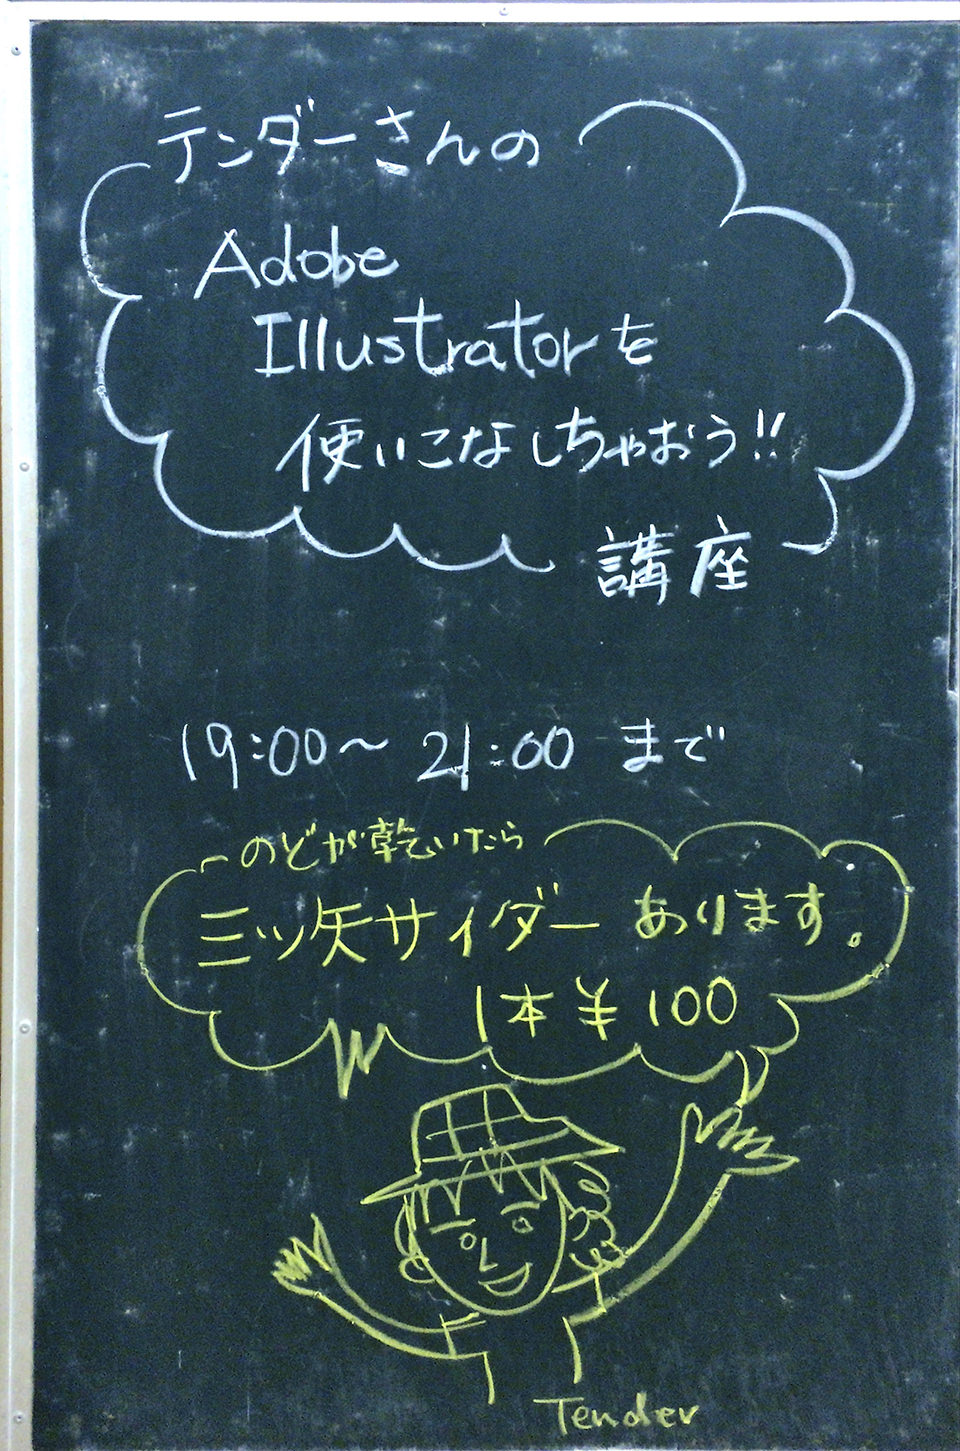 テンダーさんの
Adobe
Illustratorを
使いこなしちゃおう!!
講座
19:00～21:00 まで
のどが乾いたら
三ツ矢サイダー あります。
1本 ¥100
Tender